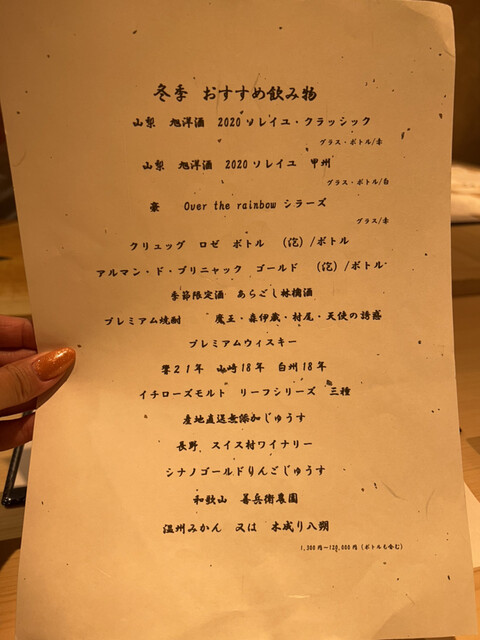 冬季 おすすめ飲み物
山梨 旭洋酒 2020ソレイユ・クラッシック
グラス・ボトル/赤
山梨 旭洋酒 2020ソレイユ 甲州
グラス・ボトル/白
豪 Over the rainbow シラーズ
グラス/赤
クリュッグ ロゼ ボトル (泡)/ボトル
アルマン・ド・ブリニャック ゴールド (泡)/ボトル
季節限定酒 あらごし林檎酒
プレミアム焼酎 魔王・森伊蔵・村尾・天使の誘惑
プレミアムウィスキー
響21年 山崎18年 白州18年
イチローズモルト リーフシリーズ 三種
産地直送無添加じゅうす
長野 スイス村ワイナリー
シナノゴールドりんごじゅうす
和歌山 善兵衛農園
温州みかん 又は 木成り八朔
1,300円~120,000円(ボトルも含む)